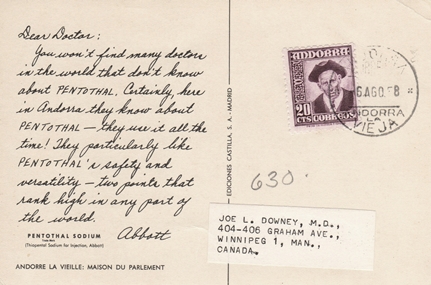 Dear Doctor:
You won't find many doctors
in the world that don't know
about PENTOTHAL. Certainly, here
in Andorra, they know about
PENTOTHAL – they use it all the
time! They particularly like
PENTOTHAL's safety and
versatility – two points that
rank high in any part of
the world.
Abbott
PENTOTHAL SODIUM
(Thiopental Sodium for Injection, Abbott)
ANDORRE LA VIEILLE: MAISON DU PARLEMENT
EDICIONES CASTILLA, S. A. - MADRID
ANDORRA
20
CTS CORREOS
ANDORRA
LA
VIEJA
630
JOE L. DOWNEY, M.D.,
404-406 GRAHAM AVE.,
WINNIPEG 1, MAN.,
CANADA.